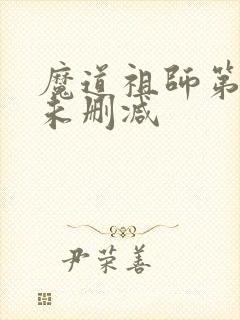 魔道祖师第
未删减
尹荣善